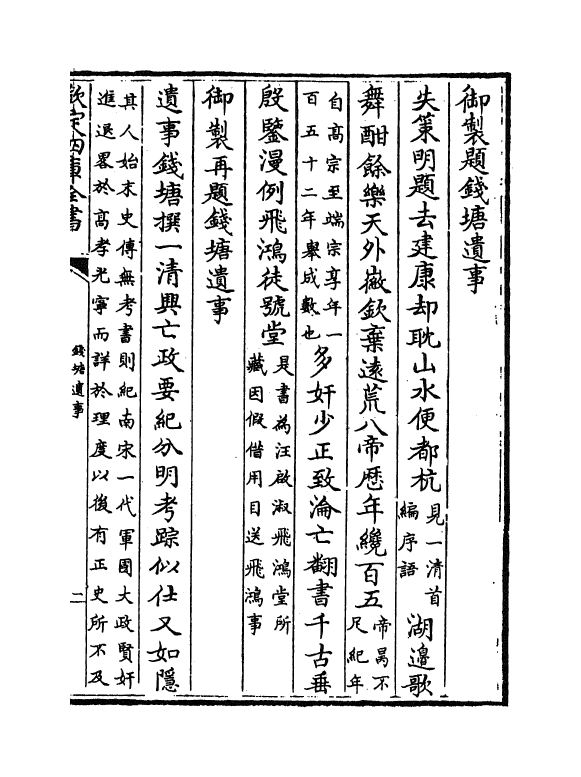 御製題錢塘遺事
失策明題去建康却耽山水便都杭
見一清首
編序語
湖邊歌
舞酣餘樂天外徽欽棄遠荒八帝歴年纔百五
帝昺不
足紀年
自髙宗至端宗享年一
百五十二年舉成數也
多奸少正致淪亡翻書千古垂
殷鑒漫例飛鴻徒號堂
是書為汪啟淑飛鴻堂所
藏因假借用目送飛鴻事
御製再題錢塘遺事
遺事錢塘撰一清興亡政要紀分明考踪似仕又如隱
其人始末史傳無考書則紀南宋一代軍國大政賢奸
進退畧於髙孝光寧而詳於理度以後有正史所不及
欽定四庫全書
錢塘遺事
二